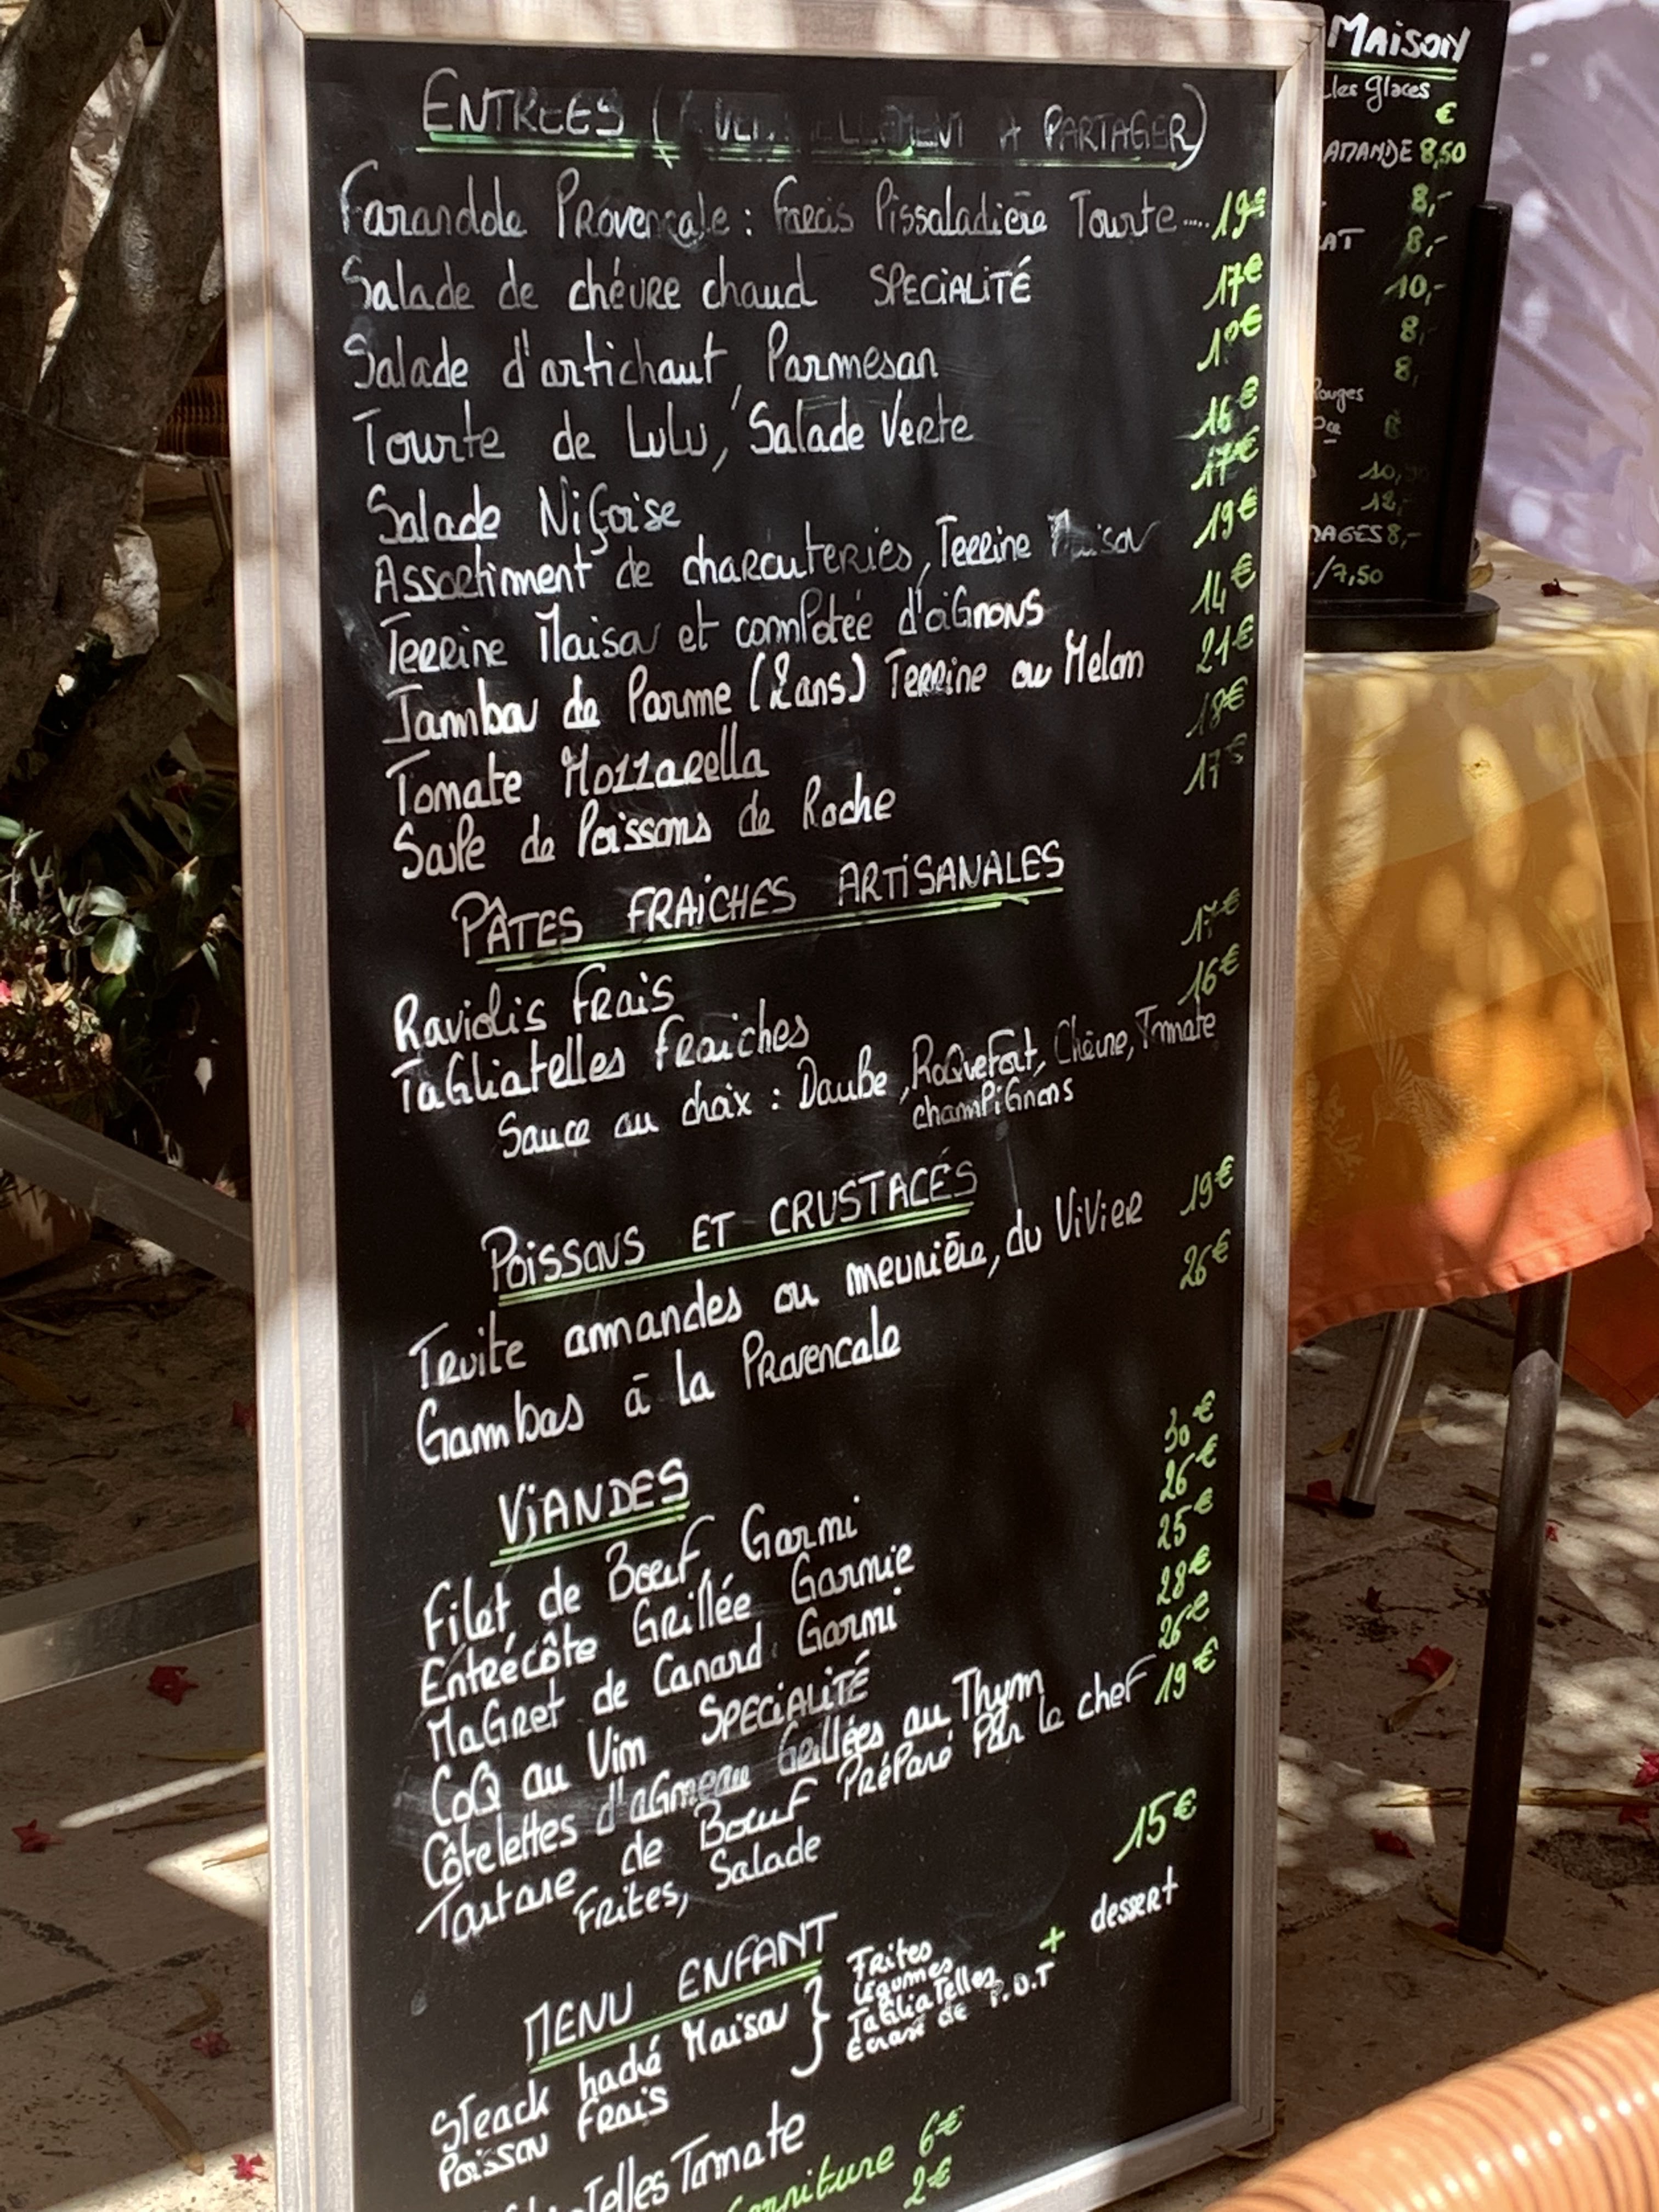 ENTREES ( A PARTAGER)
Farandole Provençale : Farcis Pissaladière Tourte..... 19€
Salade de chévre chaud SPECIALITÉ 17€
Salade d'artichaut, Parmesan
Tourte de Lulu, Salade Verte 16€
Salade Niçoise 17€
Assortiment de charcuteries, Terrine Maison 19€
Terrine Maison et compotée d'oignons 14€
Jambon de Parme (2ans) Terrine ou Melon 21€
Tomate Mozzarella 18€
Soupe de Poissons de Roche 17€
PÂTES FRAICHES ARTISANALES
Raviolis Frais 17€
Tagliatelles Fraiches 16€
Sauce au choix : Daube, Roquefort, Chèvre, Tomate
champignons
POISSONS ET CRUSTACÉS
Truite amandes ou meunière, du Vivier 19€
Gambas à la Provencale 26€
VIANDES
Filet de Boeuf Garni 30€
Entrécôte Grillée Garnie 26€
Magret de Canard Garni 25€
Coq au Vin SPECIALITÉ 28€
Côtelettes d'agneau Grillées au Thym 26€
Tartare de Boeuf Préparé Par le chef 19€
Frites, Salade
MENU ENFANT 15€
Steack haché Maison } Frites
Légumes
Tagliatelles
Ecrasé de P.D.T
+ dessert
Poisson Frais
Tomate
6€
2€
MAISON
Glaces
€
AMANDE 8,50
8,-
8,-
10,-
8,-
8,
10,
12,-
8,-
/7,50